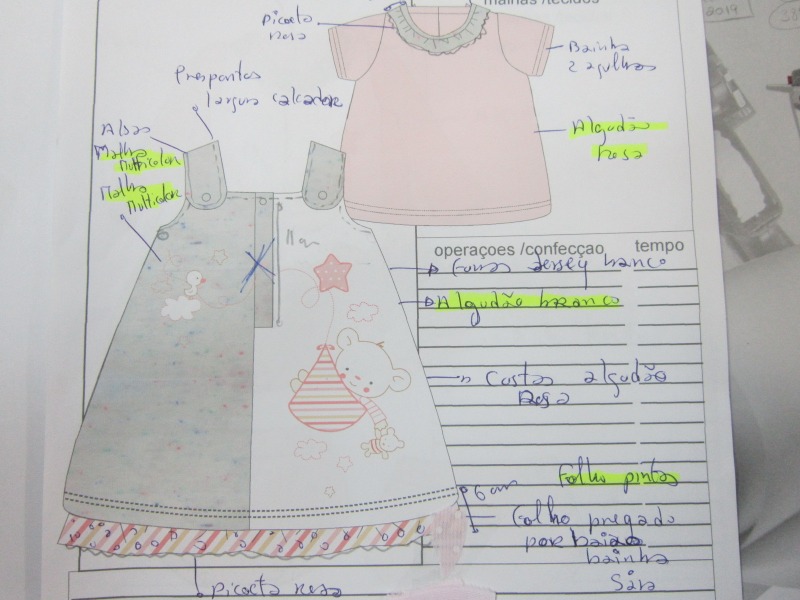 malhas /tecidos
2019
picoeta
rosa
Bainha
2 agulhas
Prespontos
largura calcador
Alças
Malha
Multicolor
Malha
Multicolor
Algodão
rosa
operaçoes /confecçao tempo
Forros Jersey branco
Algodão branco
Costas algodão
Rosa
Folho pintas
6 cm
Folho pregado
por baixo
bainha
Saia
picoeta rosa